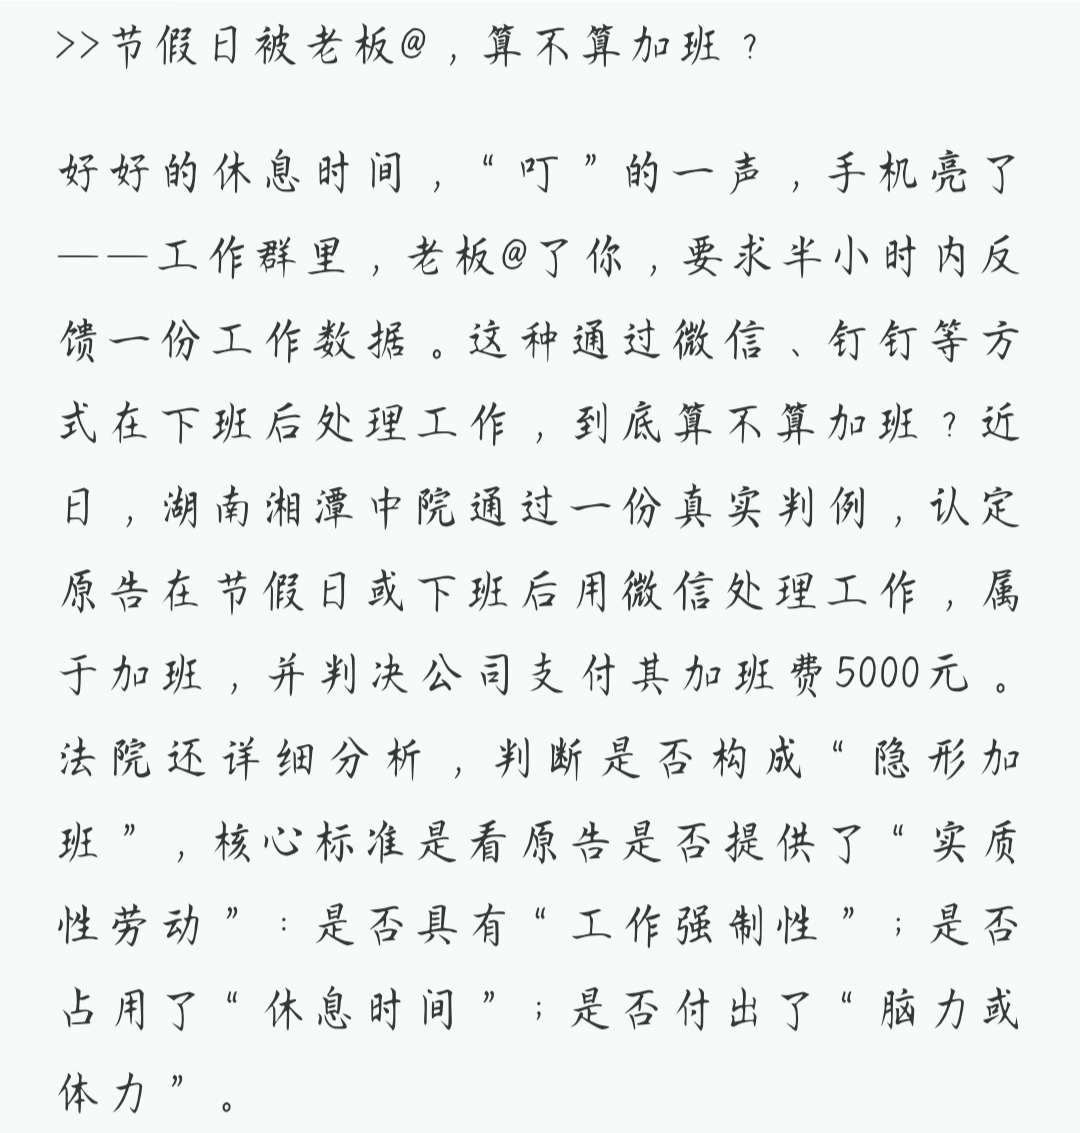 >>节假日被老板@，算不算加班？
好好的休息时间，“叮”的一声，手机亮了
——工作群里，老板@了你，要求半小时内反
馈一份工作数据。这种通过微信、钉钉等方
式在下班后处理工作，到底算不算加班？近
日，湖南湘潭中院通过一份真实判例，认定
原告在节假日或下班后用微信处理工作，属
于加班，并判决公司支付其加班费5000元。
法院还详细分析，判断是否构成“隐形加
班”，核心标准是看原告是否提供了“实质
性劳动”：是否具有“工作强制性”；是否
占用了“休息时间”；是否付出了“脑力或
体力”。